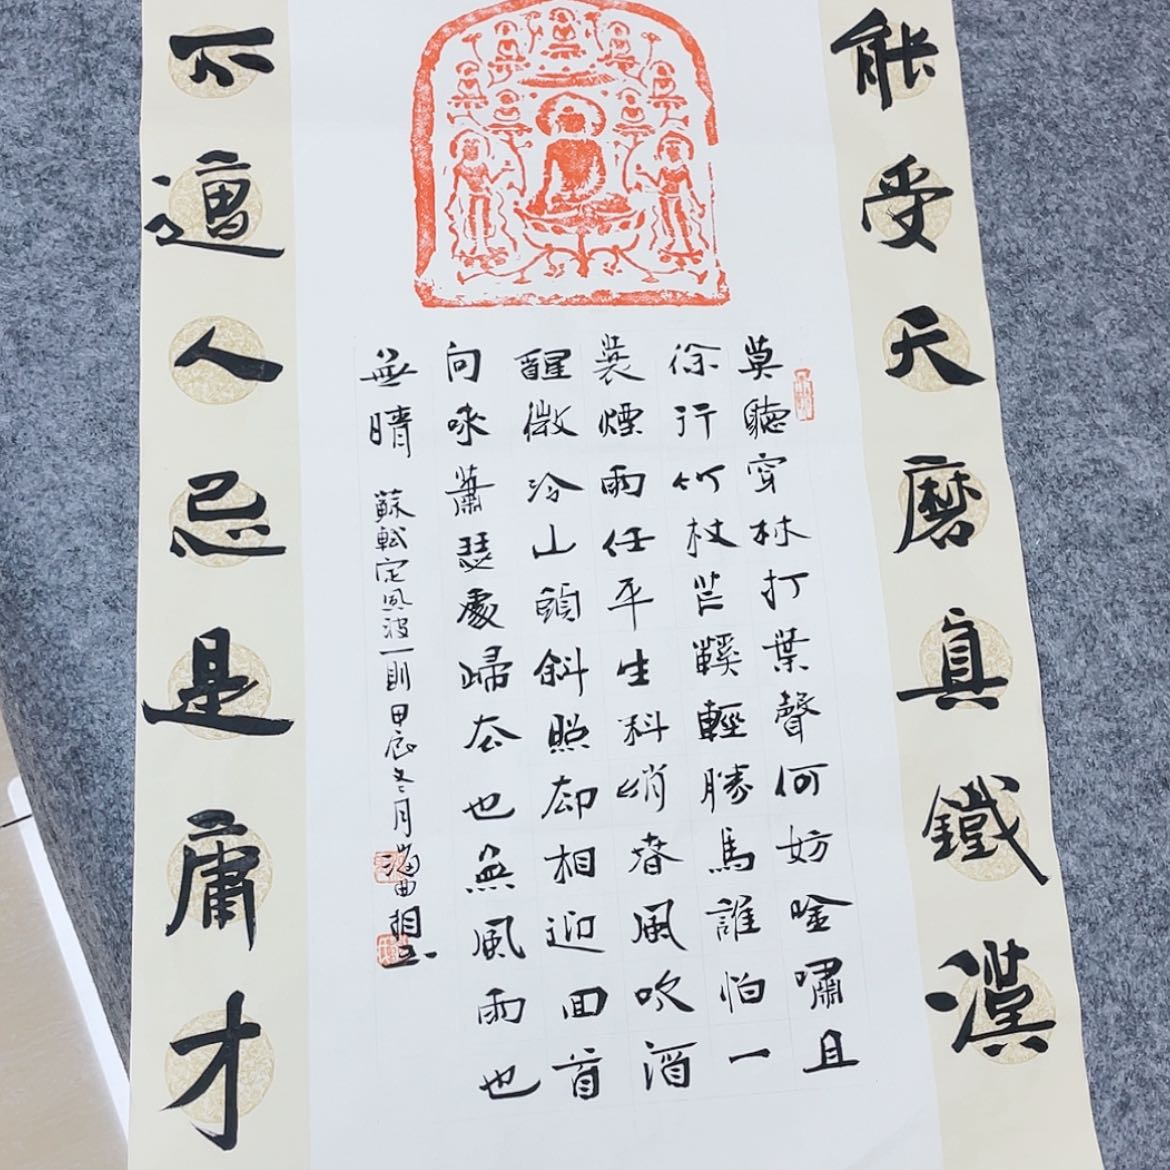 能受天磨真鐵漢
莫聽穿林打葉聲何妨唫嘯且
徐行竹杖芒鞵輕勝馬誰怕一
蓑煙雨任平生料峭春風吹酒
醒微冷山頭斜照却相迎回首
向來蕭瑟處歸去也無風雨也
無晴
蘇軾定風波一則甲辰冬月
不遭人忌是庸才